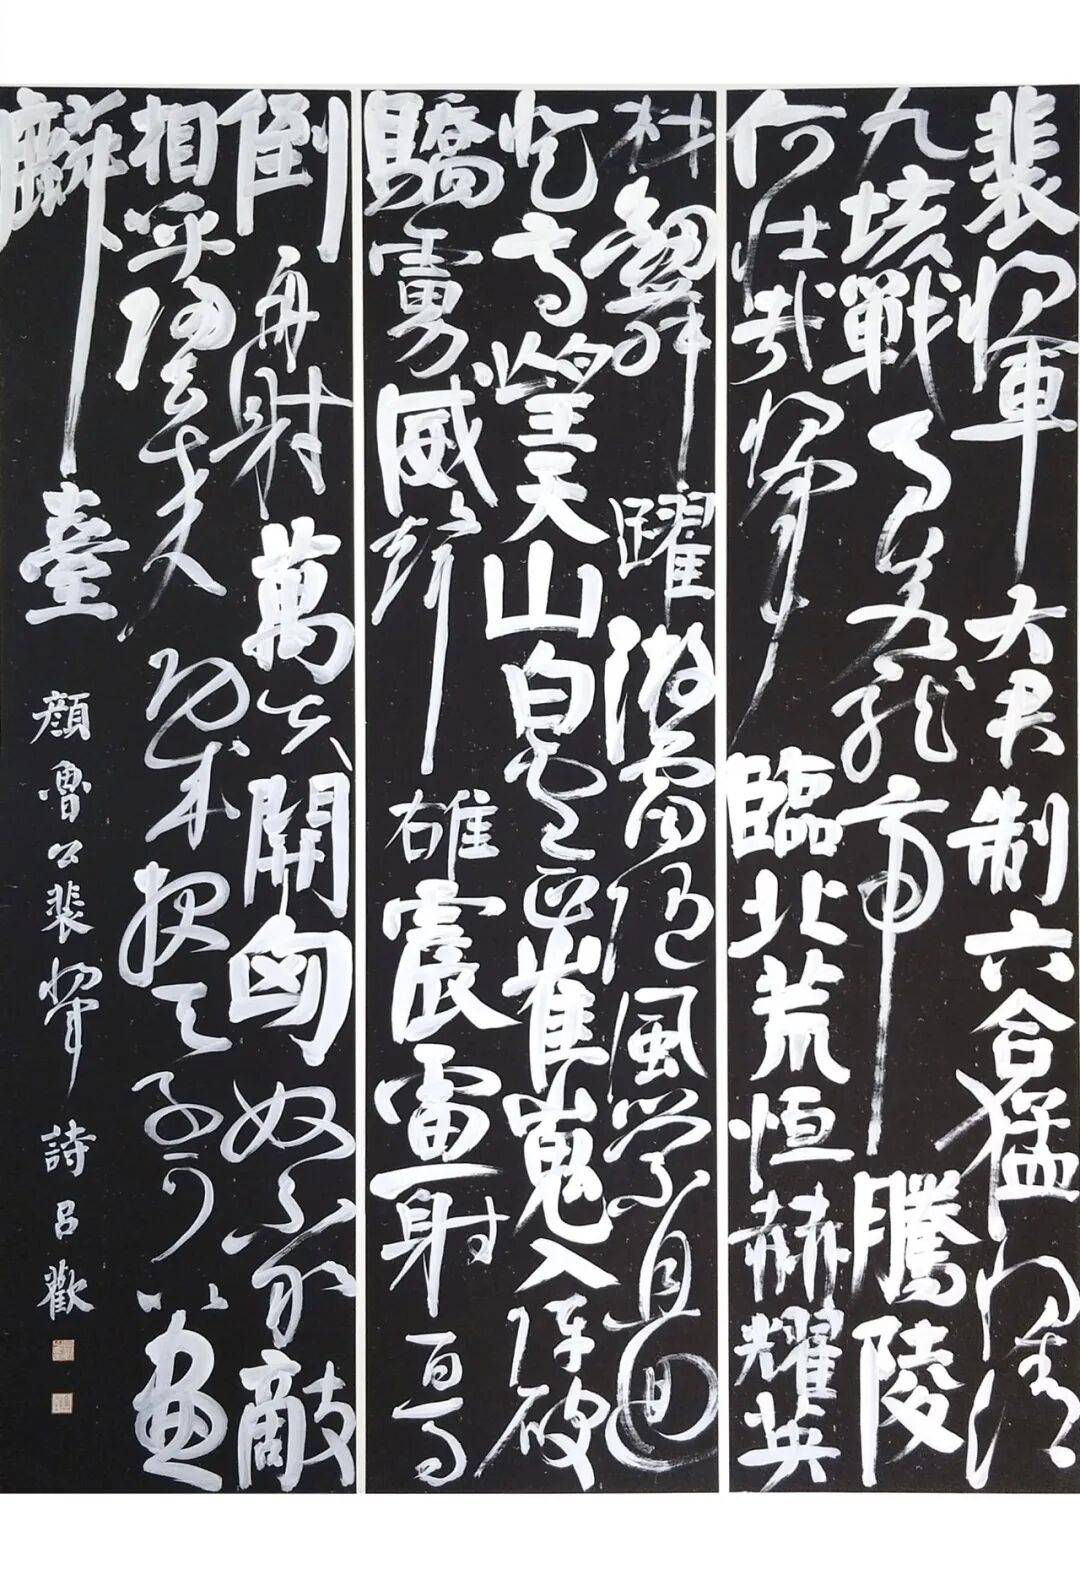 裴將軍大君制六合猛將清
九垓戰馬若龍虎騰陵
何壯哉將軍臨北荒恒赫耀英
材劍舞躍游電隨風縈且回
登高望天山白雲正崔嵬入陣破
驕虜威聲雄震雷一射百馬
倒再射萬夫開匈奴不敢敵
相呼歸去來功成報天子可以畫
麟臺
顏魯公裴將軍詩呂歡